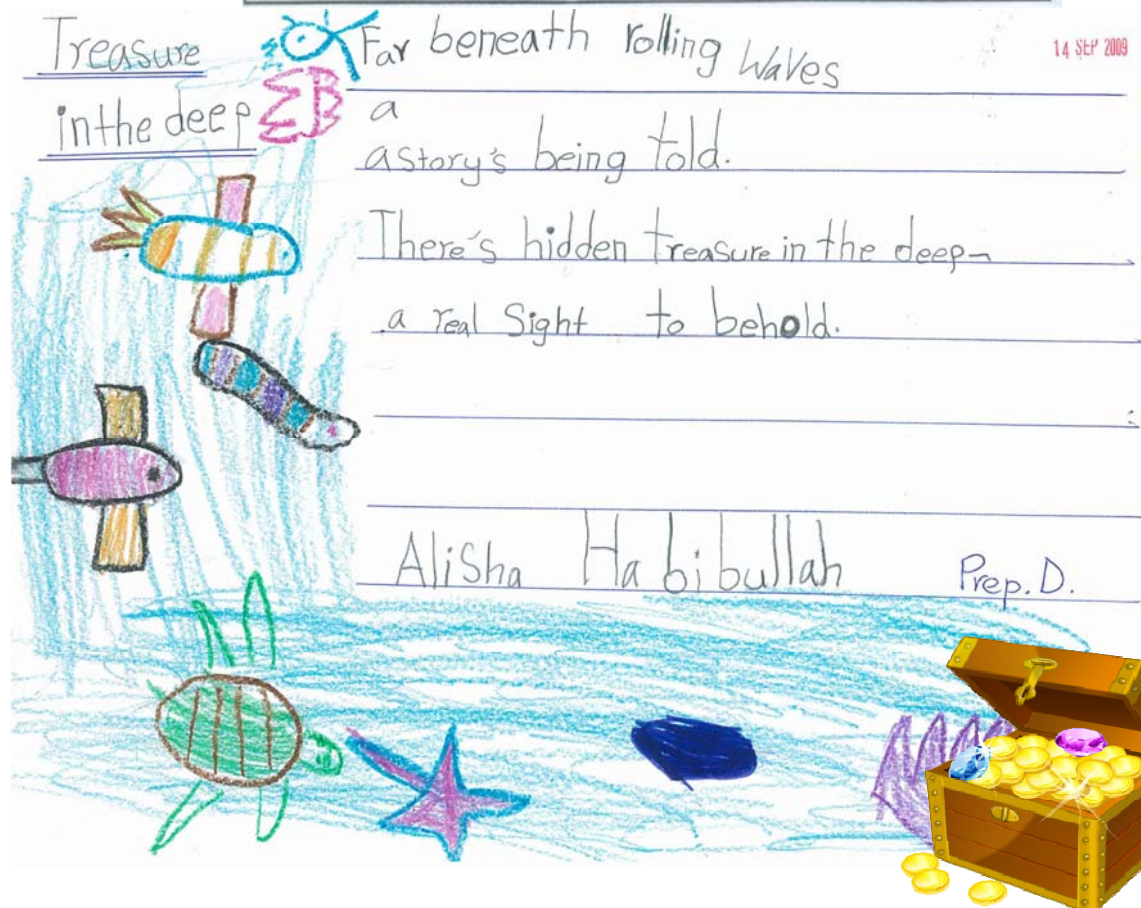 Treasure
in the deep
Far beneath rolling Waves
14 SEP 2009
a
a story's being told.
There's hidden treasure in the deep-
a real Sight to behold.
AliSha Habibullah Prep. D.